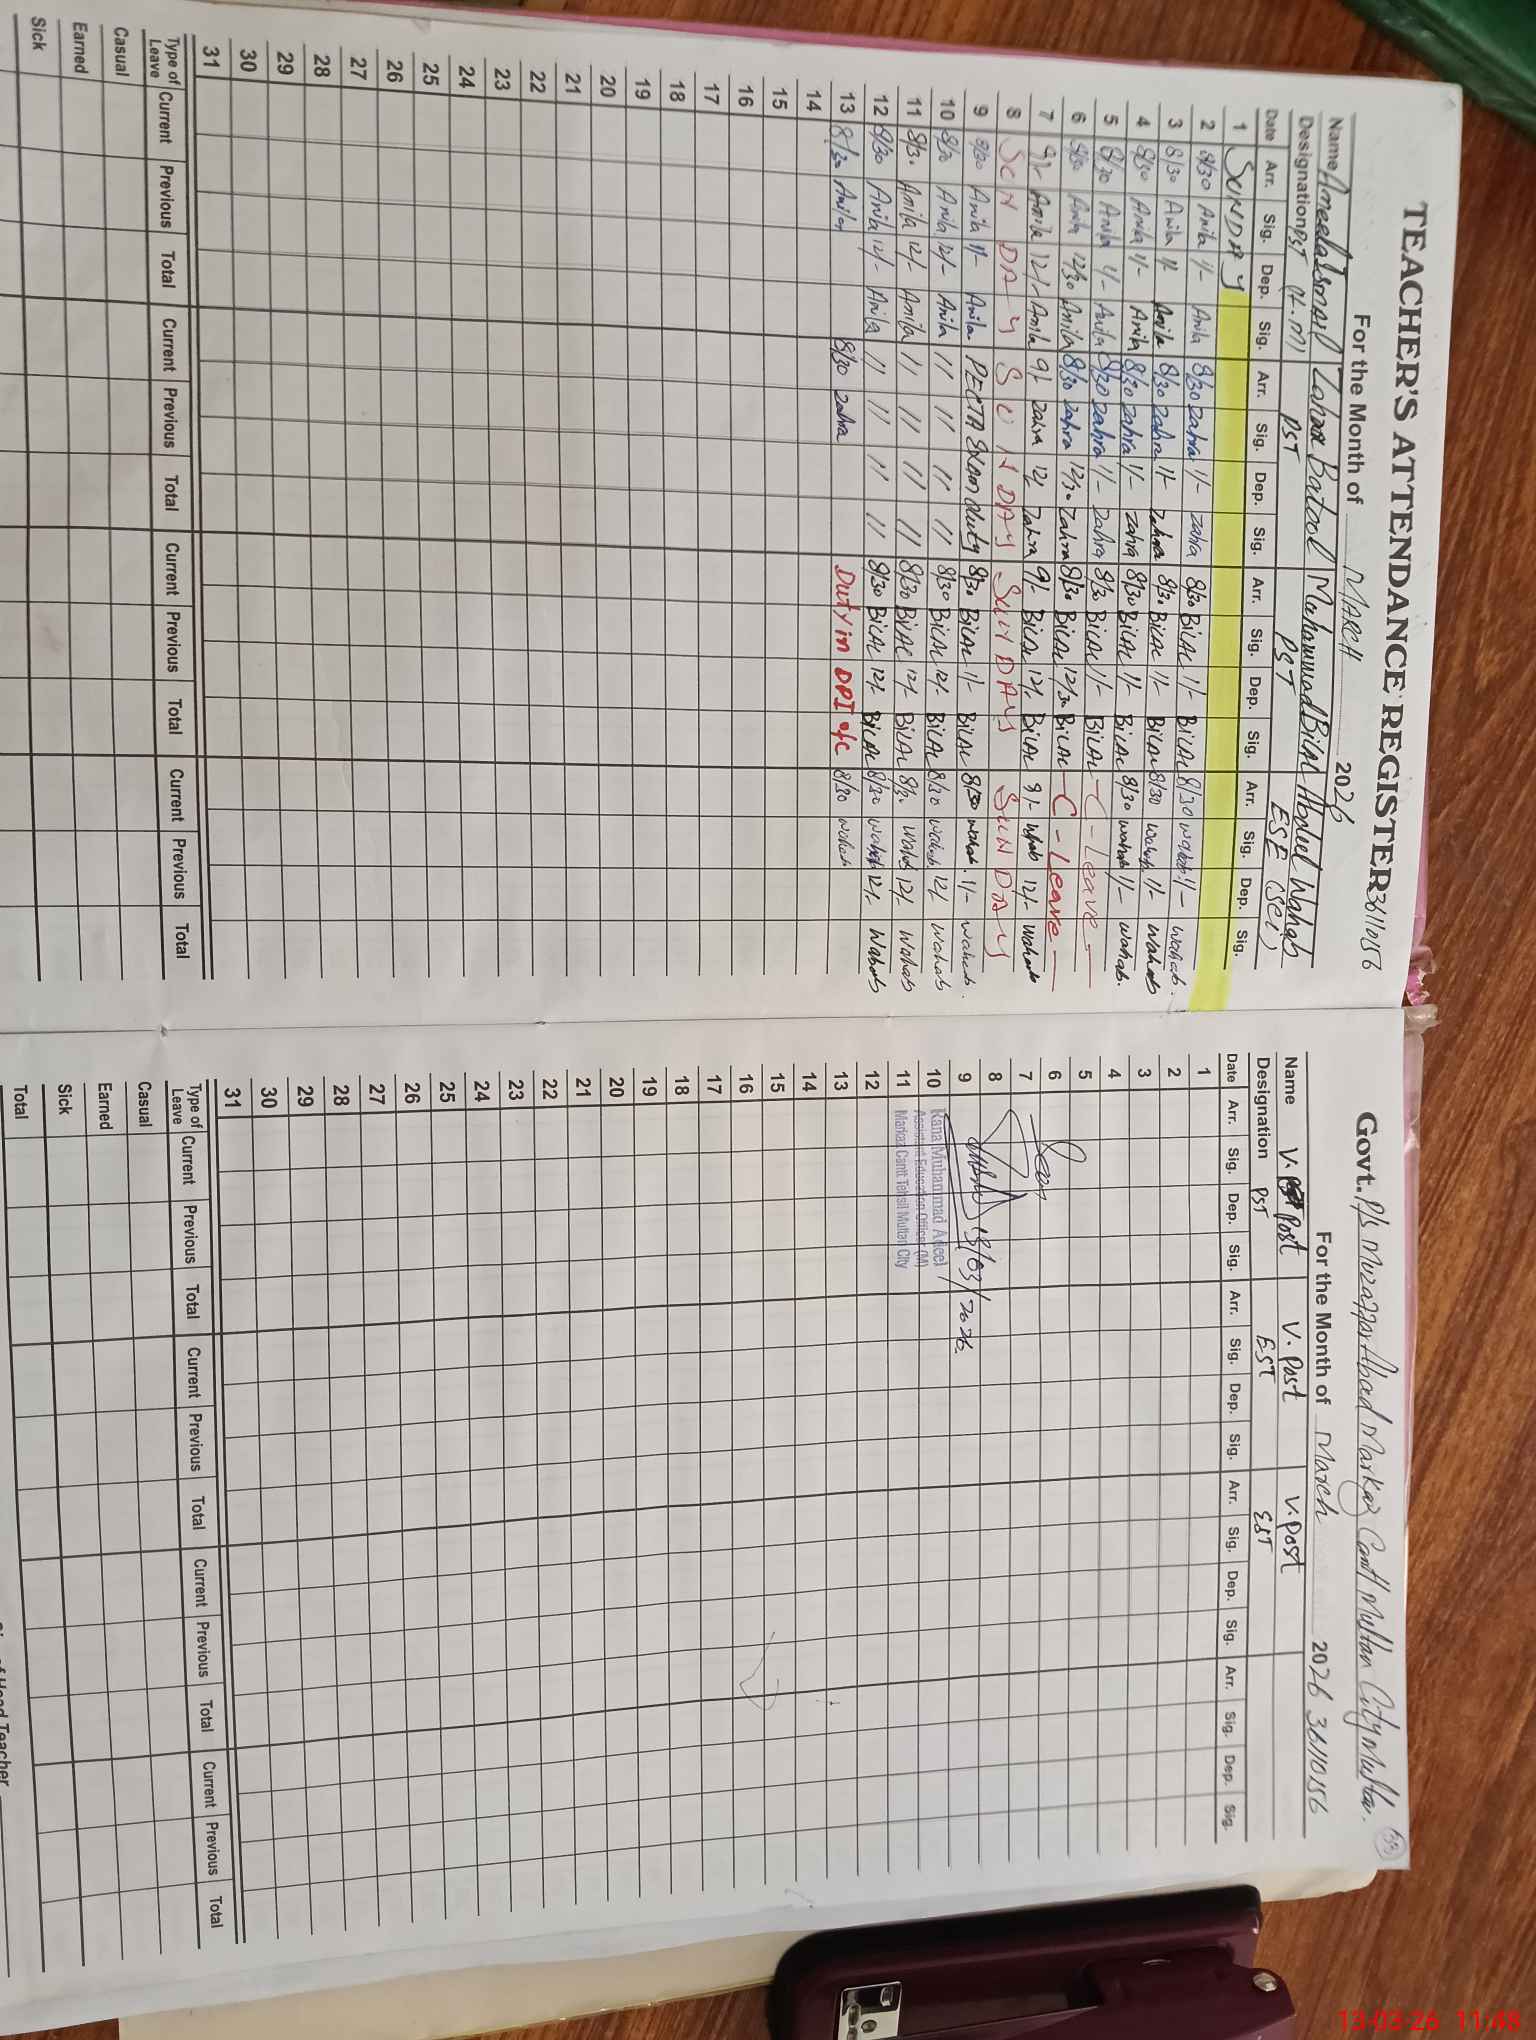 TEACHER'S ATTENDANCE REGISTER 36110156
For the Month of MARCH 2026
Name Aneela Ismail Zahra Batool Muhammad Bilal Abdul Wahab
Designation PST (H.M) PST PST ESE (SCI)
Date Arr. Sig. Dep. Sig. Arr. Sig. Dep. Sig. Arr. Sig. Dep. Sig. Arr. Sig. Dep. Sig.
1 SUNDAY
2 8/30 Anila 1/- Anila 8/30 Zahra 1/- Zahra 8/30 BILAL 1/- BILAL 8/30 wahab 1/- wahab.
3 8/30 Anila 1/- Anila 8/30 Zahra 1/- Zahra 8/30 BILAL 1/- BILAL 8/30 wahab 1/- wahab
4 8/30 Anila 1/- Anila 8/30 Zahra 1/- Zahra 8/30 BILAL 1/- BILAL 8/30 wahab 1/- wahab.
5 8/30 Anila 1/- Anila 8/30 Zahra 1/- Zahra 8/30 BILAL 1/- BILAL C-Leave
6 8/30 Anila 12/30 Anila 8/30 Zahra 12/30 Zahra 8/30 BILAL 12/30 BILAL C-Leave
7 9/- Anila 12/- Anila 9/- Zahra 12/ Zahra 9/- BILAL 12/- BILAL 9/- wahab 12/- wahab
8 SUN DAY SUN DAY SUN DAY SUN DAY
9 8/30 Anila 1/- Anila PECTA EXAM duty 8/30 BILAL 1/- BILAL 8/30 wahab. 1/- wahab.
10 8/30 Anila 12/- Anila // // // // 8/30 BILAL 12/- BILAL 8/30 wahab 12/ wahab
11 8/30 Anila 12/- Anila // // // // 8/30 BILAL 12/- BILAL 8/30 wahab 12/- wahab
12 8/30 Anila 12/- Anila // // // // 8/30 BILAL 12/- BILAL 8/30 wahab 12/- wahab
13 8/30 Anila 8/30 Zahra Duty in DPI o/c 8/30 wahab
14
15
16
17
18
19
20
21
22
23
24
25
26
27
28
29
30
31
Type of Leave Current Previous Total Current Previous Total Current Previous Total Current Previous Total
Casual
Earned
Sick
Govt. P/S Muzaffar Abad Markaz Cantt Multan City Multan. 33
For the Month of March 2026 36110156
Name V. Post V. Post V. Post
Designation PST EST EST
Date Arr. Sig. Dep. Sig. Arr. Sig. Dep. Sig. Arr. Sig. Dep. Sig. Arr. Sig. Dep. Sig.
1
2
3
4
5
6
7
8
9 13/03/2026.
10 Rana Muhammad Adeel
Assistant Education Officer (M)
11 Markaz Cantt Tehsil Multan City
12
13
14
15
16
17
18
19
20
21
22
23
24
25
26
27
28
29
30
31
Type of Leave Current Previous Total Current Previous Total Current Previous Total Current Previous Total
Casual
Earned
Sick
Total
of Head Teacher
13-03-26 11:48